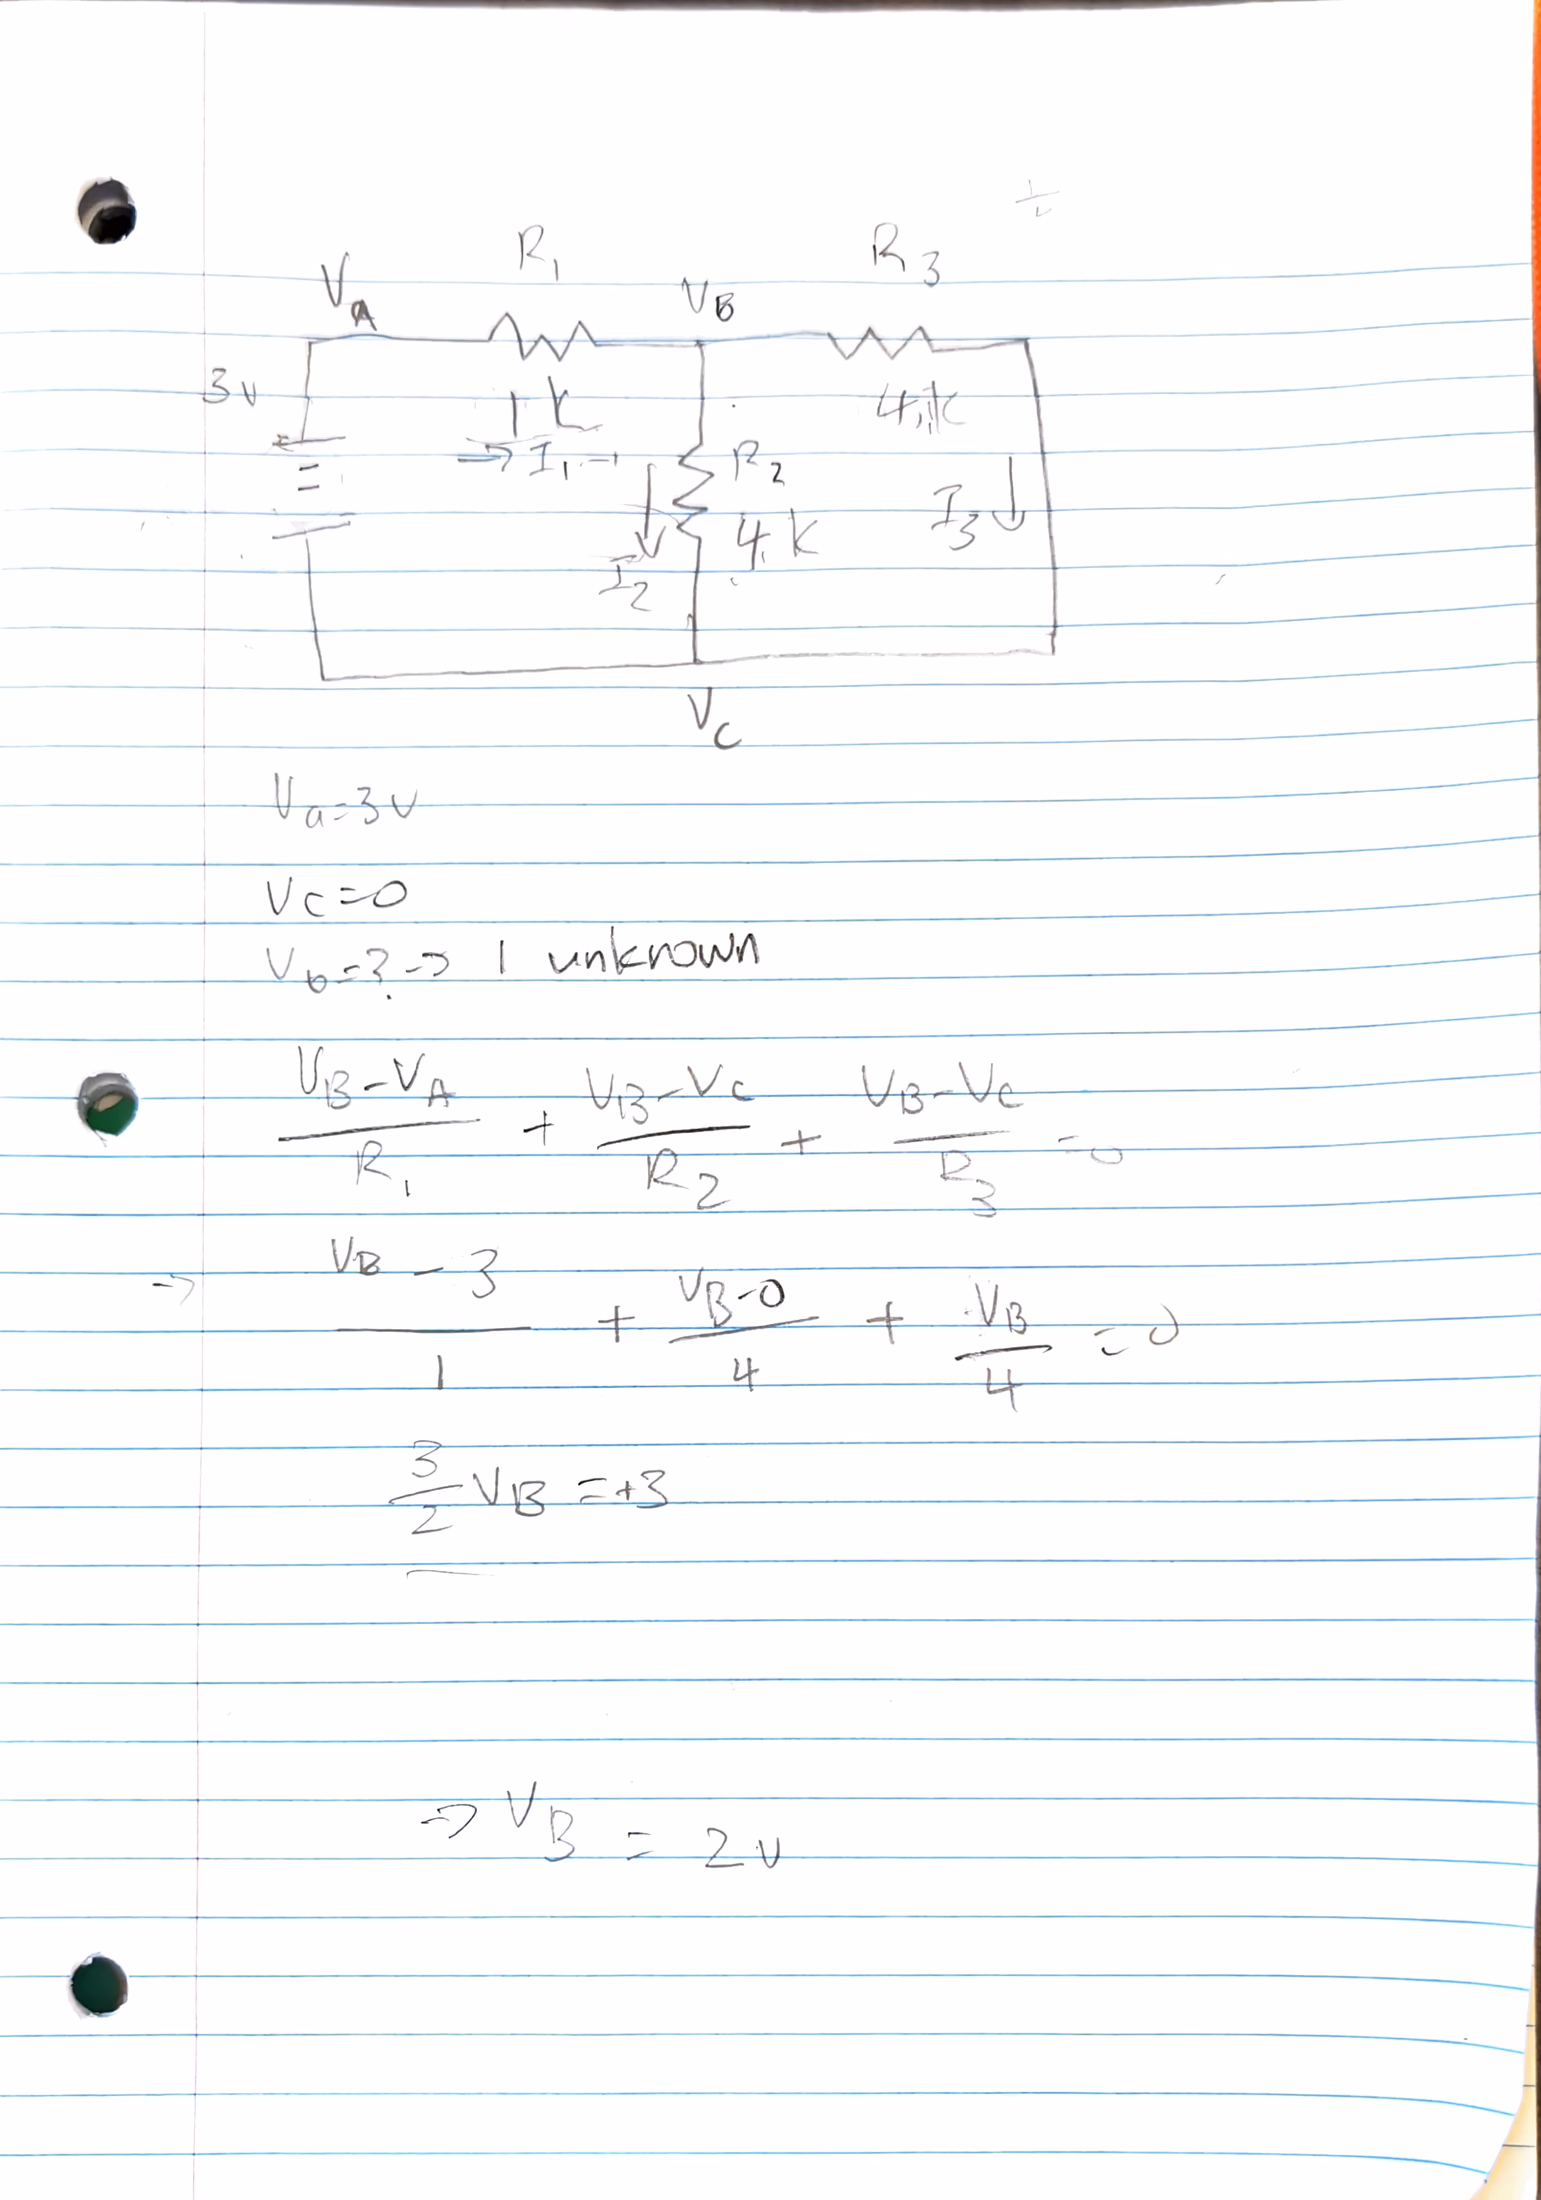 R₁ R₃
V_A V_B
3v
1k 4k
→ I₁ → R₂ I₃
4k
I₂
V_C
Va=3v
Vc=0
Vb=? → 1 unknown
(V_B-V_A)/R₁ + (V_B-V_C)/R₂ + (V_B-V_C)/R₃ =0
→ (V_B-3)/1 + (V_B-0)/4 + V_B/4 =0
3/2 V_B =+3
⇒ V_B = 2v